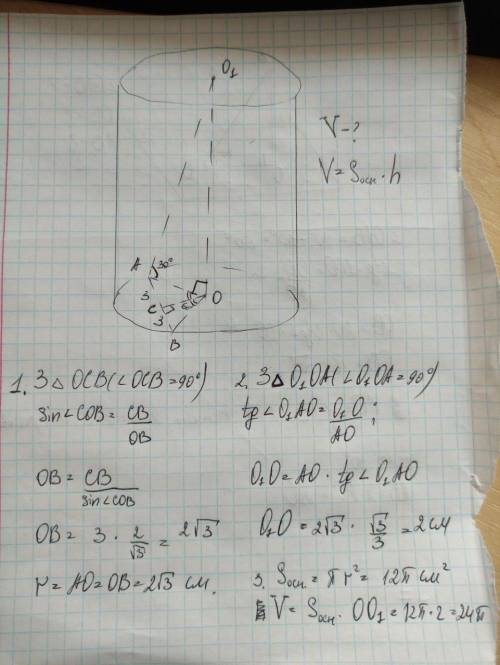 O₁
V - ?
V = Sосн · h
A 30°
3
C
3
O
B
1. З △ OCB (∠OCB = 90°)
sin∠COB = CB/OB
OB = CB/sin∠COB
OB = 3 · 2/√3 = 2√3
r = AO = OB = 2√3 см.
2. З △ O₁OA (∠O₁OA = 90°)
tg∠O₁AO = O₁O/AO ;
O₁O = AO · tg∠O₁AO
O₁O = 2√3 · √3/3 = 2 см
3. Sосн = πr² = 12π см²
V = Sосн · OO₁ = 12π · 2 = 24π